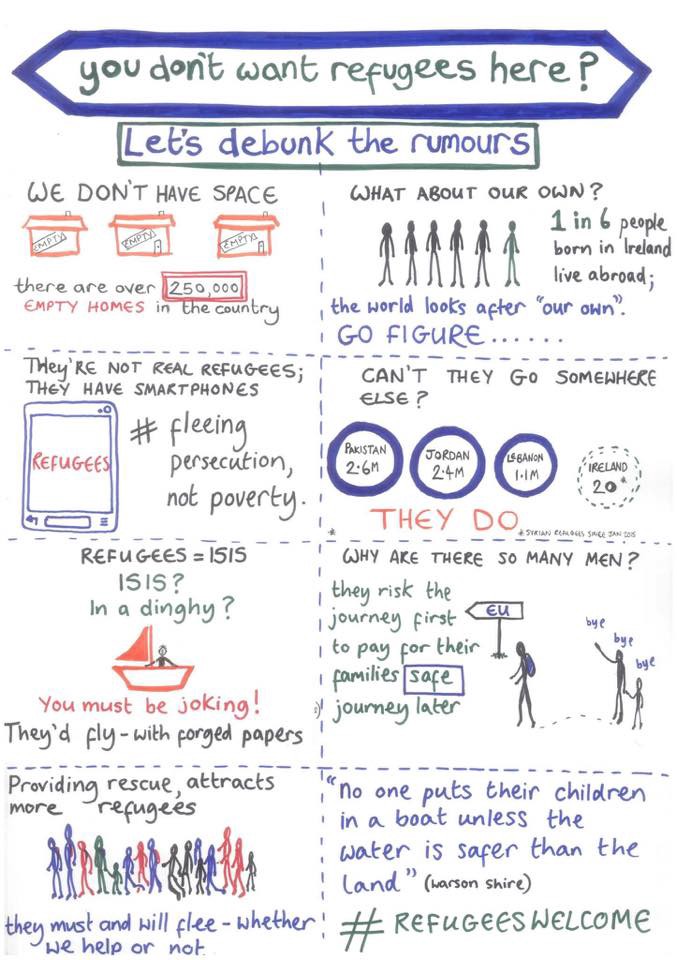 you don't want refugees here?
Let's debunk the rumours
WE DON'T HAVE SPACE
EMPTY
EMPTY
EMPTY
there are over 250,000
EMPTY HOMES in the country
WHAT ABOUT OUR OWN?
1 in 6 people
born in Ireland
live abroad;
the world looks after "our own".
GO FIGURE......
THEY'RE NOT REAL REFUGEES;
THEY HAVE SMARTPHONES
REFUGEES
# fleeing
persecution,
not poverty.
CAN'T THEY GO SOMEWHERE
ELSE?
PAKISTAN
2.6M
JORDAN
2.4M
LEBANON
1.1M
IRELAND
20*
THEY DO
* SYRIAN REFUGEES SINCE JAN 2015
REFUGEES = ISIS
ISIS?
In a dinghy?
You must be joking!
They'd fly - with forged papers
WHY ARE THERE SO MANY MEN?
they risk the
journey first
to pay for their
families safe
journey later
EU
bye
bye
bye
Providing rescue, attracts
more refugees
they must and will flee - whether
we help or not.
"No one puts their children
in a boat unless the
water is safer than the
land" (warson shire)
# REFUGEES WELCOME